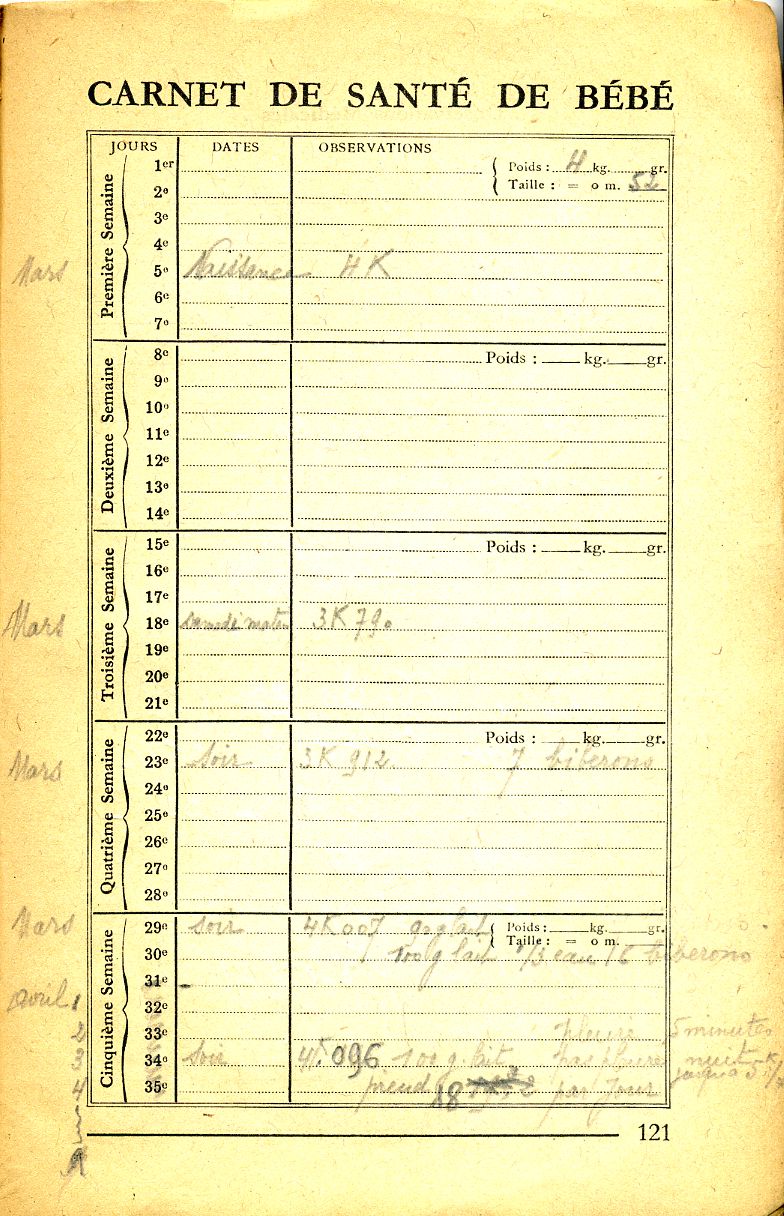 CARNET DE SANTÉ DE BÉBÉ
JOURS DATES OBSERVATIONS
Première Semaine
1er Poids : 4 kg. gr.
2e Taille : = 0 m. 52
3e
4e
Mars 5e Naissance 4 K
6e
7e
Deuxième Semaine
8e Poids : kg. gr.
9e
10e
11e
12e
13e
14e
Troisième Semaine
15e Poids : kg. gr.
16e
17e
Mars 18e samedi matin 3K790
19e
20e
21e
Quatrième Semaine
22e Poids : kg. gr.
Mars 23e soir 3K912 7 biberons
24e
25e
26e
27e
28e
Cinquième Semaine
Mars 29e soir 4K007 90g lait Poids : kg. gr.
Taille : = 0 m.
30e 100g lait 1/3 eau 6 biberons
31e
avril 1 32e
2 33e pleure 5 minutes
3 34e soir 4K.096 100 g. lait pas pleuré nuit
4 35e prend par jour jusqu'à 5
121